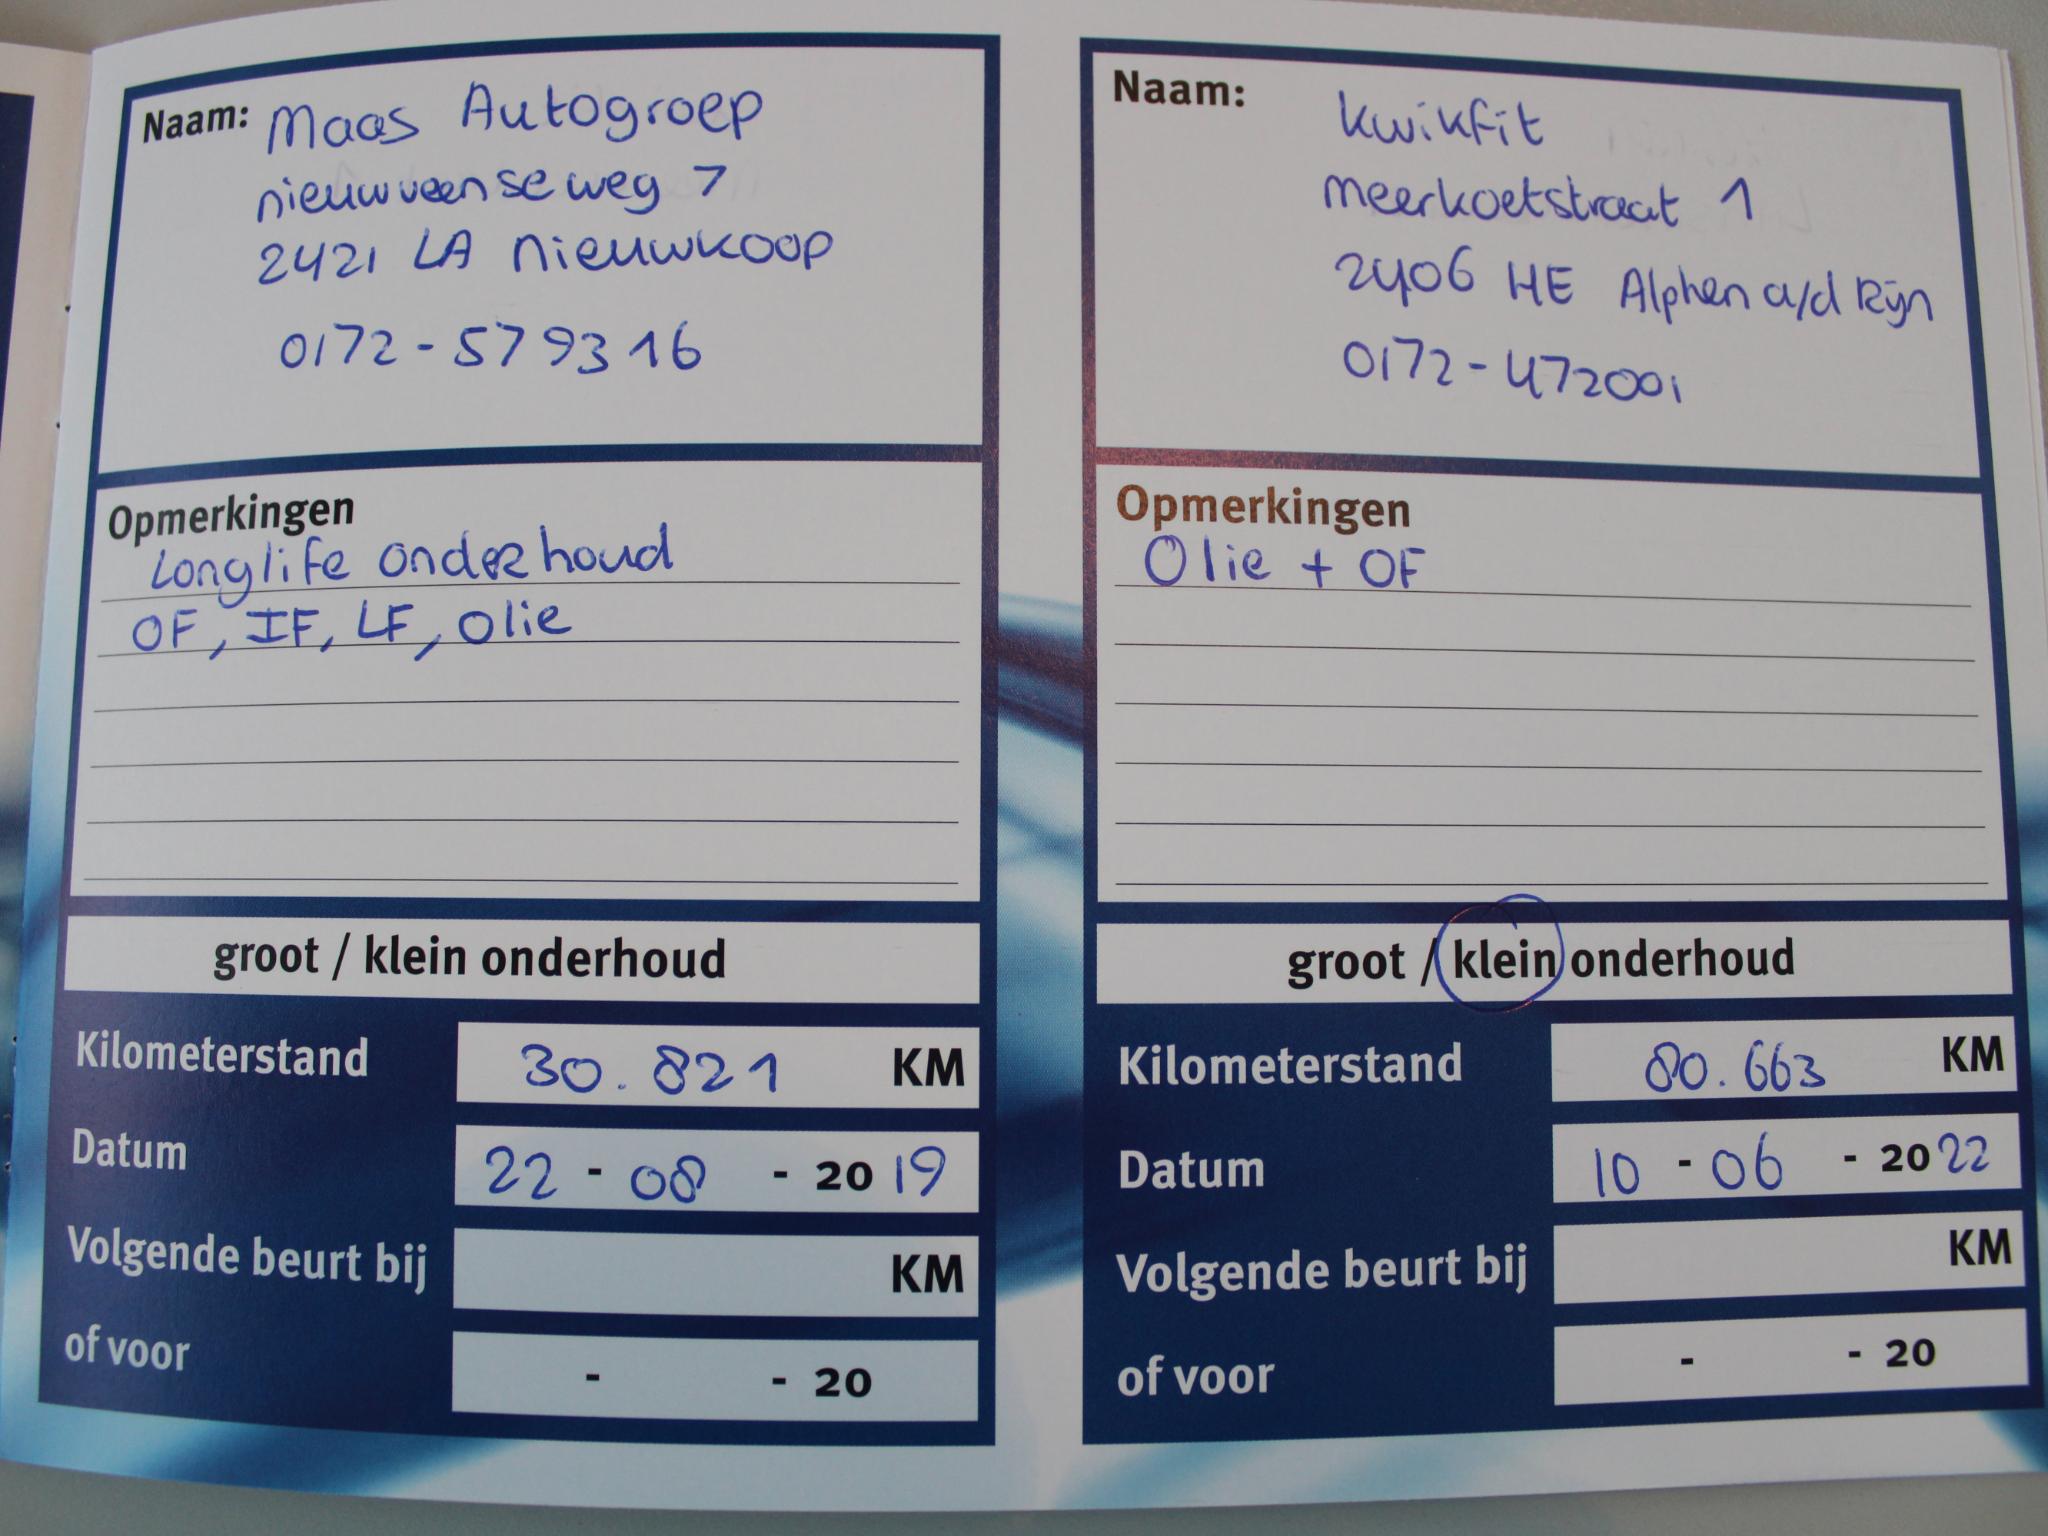 Naam: Maas Autogroep
nieuwveenseweg 7
2421 LA nieuwkoop
0172-579316
Opmerkingen
Longlife onderhoud
OF, IF, LF, olie
groot / klein onderhoud
Kilometerstand 30.821 KM
Datum 22 - 08 - 2019
Volgende beurt bij KM
of voor - - 20
Naam: Kwikfit
Meerkoetstraat 1
2406 HE Alphen a/d Rijn
0172-472001
Opmerkingen
Olie + OF
groot / klein onderhoud
Kilometerstand 80.663 KM
Datum 10 - 06 - 2022
Volgende beurt bij KM
of voor - - 20